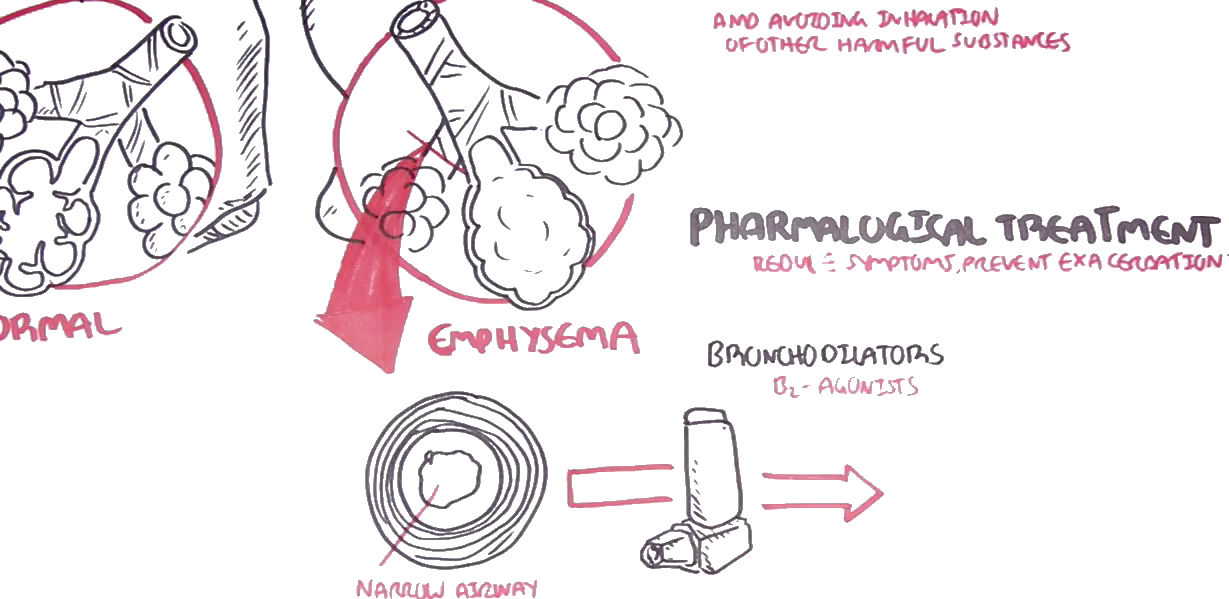 AND AVOIDING INHALATION
OF OTHER HARMFUL SUBSTANCES
PHARMALOGICAL TREATMENT
REDUCE SYMPTOMS, PREVENT EXACERBATION
ORMAL
EMPHYSEMA
BRONCHODILATORS
B₂- AGONISTS
NARROW AIRWAY